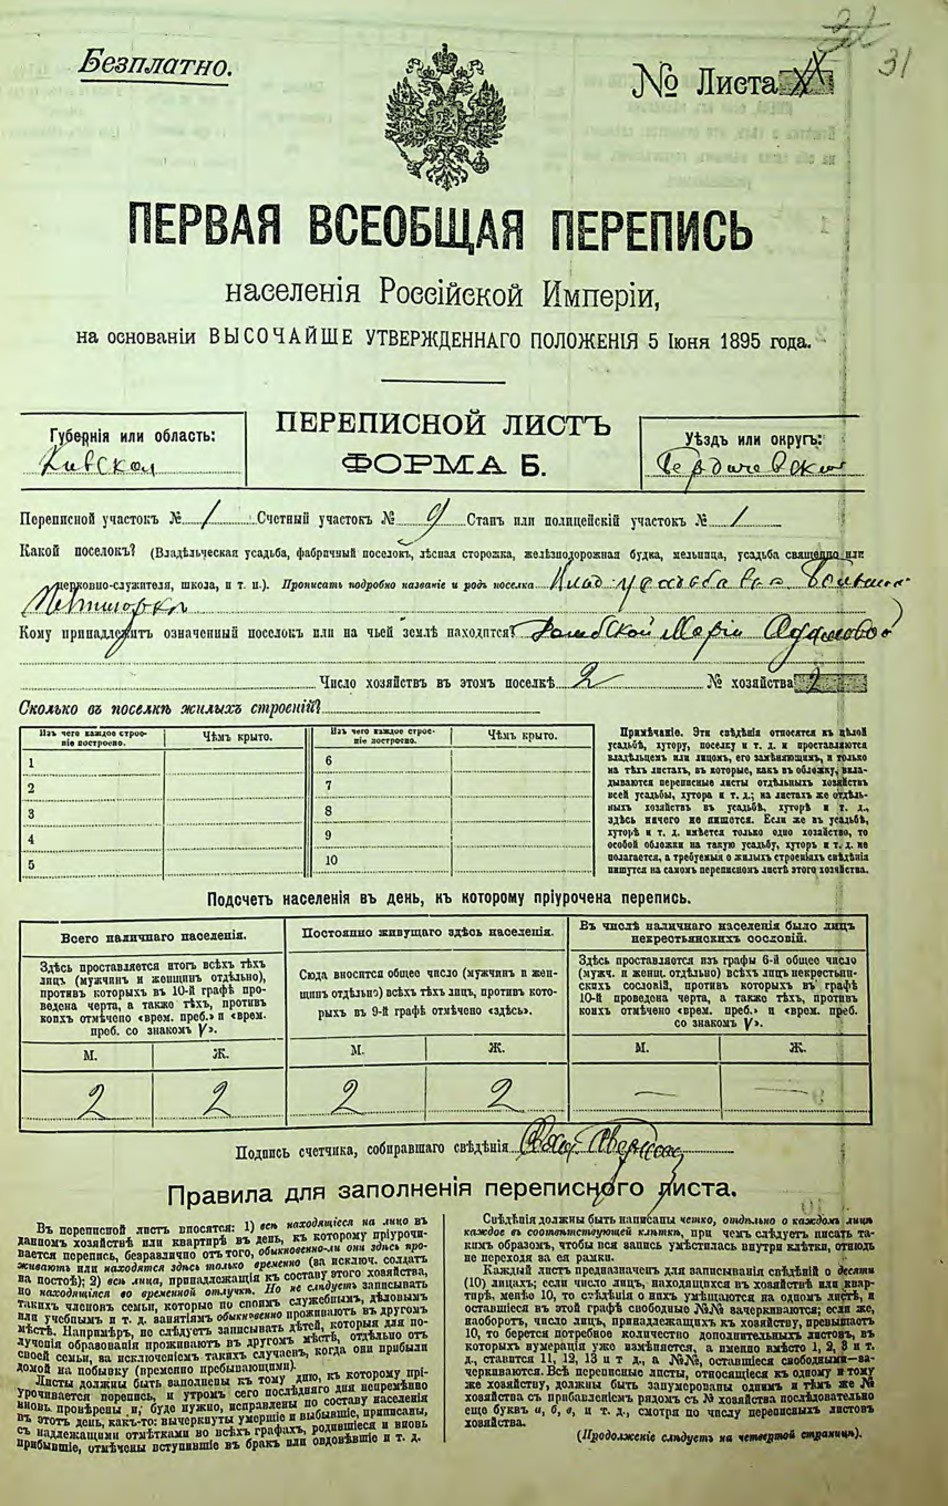 31
Безплатно.
№ Листа
ПЕРВАЯ ВСЕОБЩАЯ ПЕРЕПИСЬ
населенія Россійской Имперіи,
на основаніи ВЫСОЧАЙШЕ УТВЕРЖДЕННАГО ПОЛОЖЕНІЯ 5 Іюня 1895 года.
ПЕРЕПИСНОЙ ЛИСТЪ
ФОРМА Б.
Губернія или область:
Кивской
Уѣздъ или округъ:
Бердичевский
Переписной участокъ № 1 Счетный участокъ № 9 Станъ или полицейскій участокъ № 1
Какой поселокъ? (Владѣльческая усадьба, фабричный поселокъ, лѣсная сторожка, желѣзнодорожная будка, мельница, усадьба священно или
церковно-служителя, школа, и т. п.). Прописать подробно названіе и родъ поселка
Кому принадлежитъ означенный поселокъ или на чьей землѣ находится? Маріи Адамовой
Число хозяйствъ въ этомъ поселкѣ 2 № хозяйства 2
Сколько въ поселкѣ жилыхъ строеній?
Изъ чего каждое строе-
ніе построено.
Чѣмъ крыто.
Изъ чего каждое строе-
ніе построено.
Чѣмъ крыто.
1
2
3
4
5
6
7
8
9
10
Примѣчаніе. Эти свѣдѣнія относятся къ цѣлой
усадьбѣ, хутору, поселку и т. д. и проставляются
владѣльцемъ или лицомъ, его замѣняющимъ, и только
на тѣхъ листахъ, въ которые, какъ въ обложку, вкла-
дываются переписные листы отдѣльныхъ хозяйствъ
всей усадьбы, хутора и т. д.; на листахъ же отдѣль-
ныхъ хозяйствъ въ усадьбѣ, хуторѣ и т. д.,
здѣсь ничего не пишется. Если же въ усадьбѣ,
хуторѣ и т. д. имѣется только одно хозяйство, то
особой обложки на такую усадьбу, хуторъ и т. д. не
полагается, а требуемыя о жилыхъ строеніяхъ свѣдѣнія
пишутся на самомъ переписномъ листѣ этого хозяйства.
Подсчетъ населенія въ день, къ которому пріурочена перепись.
Всего наличнаго населенія.
Здѣсь проставляется итогъ всѣхъ тѣхъ
лицъ (мужчинъ и женщинъ отдѣльно),
противъ которыхъ въ 10-й графѣ про-
ведена черта, а также тѣхъ, противъ
коихъ отмѣчено «врем. преб.» и «врем.
преб. со знакомъ V».
М. Ж.
2 2
Постоянно живущаго здѣсь населенія.
Сюда вносится общее число (мужчинъ и жен-
щинъ отдѣльно) всѣхъ тѣхъ лицъ, противъ кото-
рыхъ въ 9-й графѣ отмѣчено «здѣсь».
М. Ж.
2 2
Въ числѣ наличнаго населенія было лицъ
некрестьянскихъ сословій.
Здѣсь проставляется изъ графы 6-й общее число
(мужч. и женщ. отдѣльно) всѣхъ лицъ некрестьян-
скихъ сословій, противъ которыхъ въ графѣ
10-й проведена черта, а также тѣхъ, противъ
коихъ отмѣчено «врем. преб.» и «врем. преб.
со знакомъ V».
М. Ж.
— —
Подпись счетчика, собиравшаго свѣдѣнія
Правила для заполненія переписного листа.
Въ переписной листъ вносятся: 1) всѣ находящіеся на лицо въ
данномъ хозяйствѣ или квартирѣ въ день, къ которому пріурочи-
вается перепись, безразлично отъ того, обыкновенно-ли они здѣсь про-
живаютъ или находятся здѣсь только временно (за исключ. солдатъ
на постоѣ); 2) всѣ лица, принадлежащія къ составу этого хозяйства,
но находящіяся во временной отлучкѣ. Но не слѣдуетъ записывать
такихъ членовъ семьи, которые по своимъ служебнымъ, дѣловымъ
или учебнымъ и т. д. занятіямъ обыкновенно проживаютъ въ другомъ
мѣстѣ. Напримѣръ, не слѣдуетъ записывать дѣтей, которыя для по-
лученія образованія проживаютъ въ другомъ мѣстѣ, отдѣльно отъ
своей семьи, за исключеніемъ такихъ случаевъ, когда они прибыли
домой на побывку (временно пребывающими).
Листы должны быть заполнены къ тому дню, къ которому прі-
урочивается перепись, и утромъ сего послѣдняго дня непремѣнно
вновь провѣрены и, буде нужно, исправлены по составу населенія
въ этотъ день, какъ-то: вычеркнуты умершіе и выбывшіе, приписаны,
съ надлежащими отмѣтками во всѣхъ графахъ, родившіеся и вновь
прибывшіе, отмѣчены вступившіе въ бракъ или овдовѣвшіе и т. д.
Свѣдѣнія должны быть написаны четко, отдѣльно о каждомъ лицѣ
каждое въ соотвѣтствующей клѣткѣ, при чемъ слѣдуетъ писать та-
кимъ образомъ, чтобы вся запись умѣстилась внутри клѣтки, отнюдь
не переходя за ея рамки.
Каждый листъ предназначенъ для записыванія свѣдѣній о десяти
(10) лицахъ; если число лицъ, находящихся въ хозяйствѣ или квар-
тирѣ, менѣе 10, то свѣдѣнія о нихъ умѣщаются на одномъ листѣ, и
оставшіеся въ этой графѣ свободные №№ вачеркиваются; если же,
наоборотъ, число лицъ, принадлежащихъ къ хозяйству, превышаетъ
10, то берется потребное количество дополнительныхъ листовъ, въ
которыхъ нумерація уже измѣняется, а именно вмѣсто 1, 2, 3 и т.
д., ставится 11, 12, 13 и т. д., а №№, оставшіеся свободными—за-
черкиваются. Всѣ переписные листы, относящіеся къ одному и тому
же хозяйству, должны быть занумерованы однимъ и тѣмъ же №
хозяйства съ прибавленіемъ рядомъ съ № хозяйства послѣдовательно
еще буквъ а, б, в, и т. д., смотря по числу переписныхъ листовъ
хозяйства.
(Продолженіе слѣдуетъ на четвертой страницѣ).